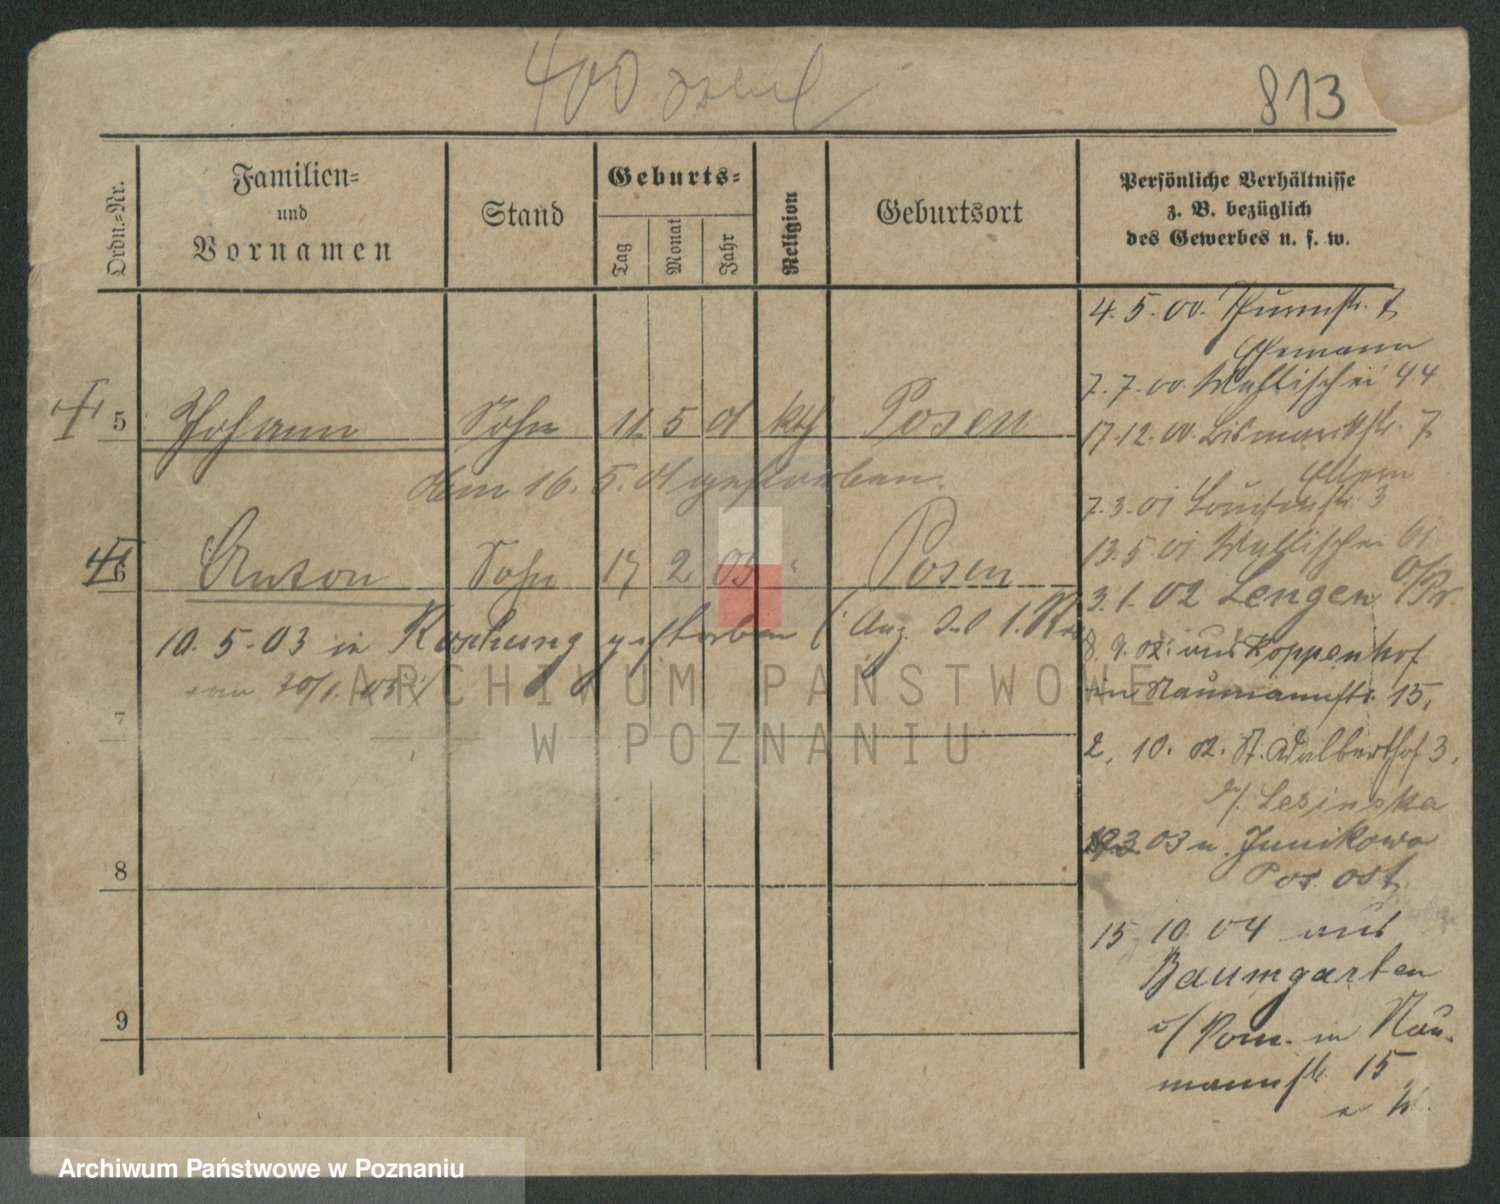 400
813
Ordn.=Nr.
Familien=
und
Vornamen
Stand
Geburts=
Tag
Monat
Jahr
Religion
Geburtsort
Persönliche Verhältnisse
z. B. bezüglich
des Gewerbes u. s. w.
4. 5. 00. Thurmstr. 7
Ehemann
7. 7. 00 Wallischei 44
17. 12. 00. Bismarckstr. 7
Eltern
7. 3. 01 Louisenstr. 3
13. 5. 01 Wallischei 61
3. 1. 02 Lengen O/Pr.
8. 9. 02: aus Koppenhof
in Naumannstr. 15,
2. 10. 02. St. Adalberthof 3.
b/. Lesinska
03 n. Junikowo
Pos. Ost
15 10. 04 aus
Baumgarten
i/ Pom. in Nau-
mannstr. 15
5 Johann Sohn 11. 5 01 kth Posen
Am 16. 5. 01 gestorben.
6 Anton Sohn 17 2 03 " Posen
10. 5. 03 in gestorben (Anz. des 1. Rev
vom 20/
7
8
9
ARCHIWUM PAŃSTWOWE
W POZNANIU
Archiwum Państwowe w Poznaniu